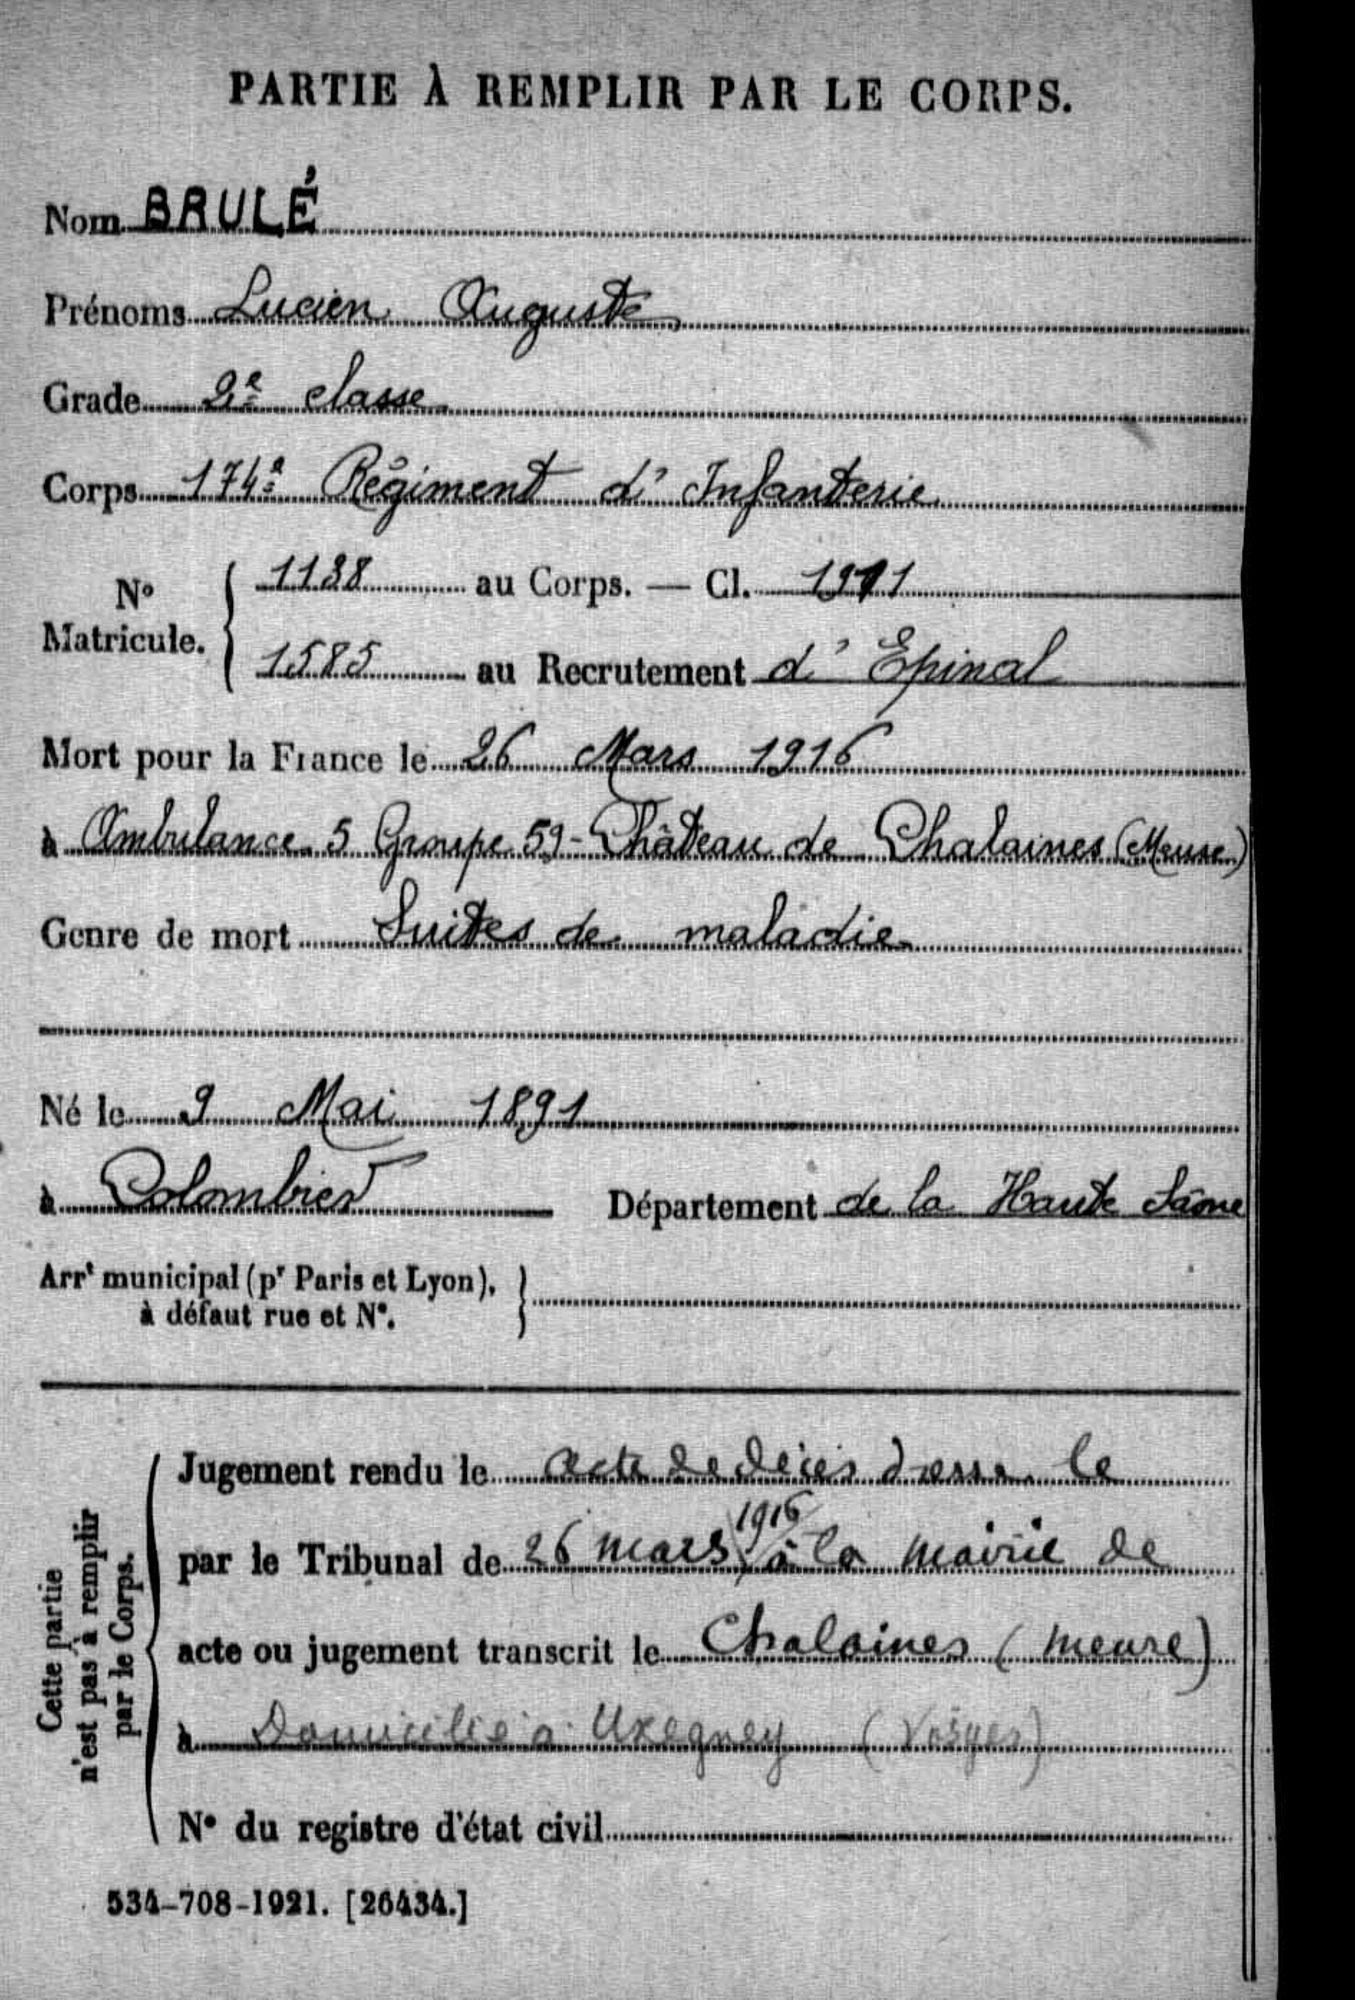 PARTIE À REMPLIR PAR LE CORPS.
Nom BRULÉ
Prénoms Lucien Auguste
Grade 2e classe
Corps 174e Régiment d' Infanterie
No Matricule. { 1138 au Corps. — Cl. 1911
1585 au Recrutement d' Epinal
Mort pour la France le 26 Mars 1916
à Ambulance 5 Groupe 59 - Château de Chalaines (Meuse)
Genre de mort Suites de maladie
Né le 9 Mai 1891
à Colombier Département de la Haute Saône
Arrt municipal (pr Paris et Lyon), à défaut rue et N°. }
Cette partie n'est pas à remplir par le Corps.
Jugement rendu le acte de décès dressé le
par le Tribunal de 26 mars 1916 à la mairie de
acte ou jugement transcrit le Chalaines (Meuse)
à Domicilié à Uxegney (Vosges)
N° du registre d'état civil
534-708-1921. [26434.]